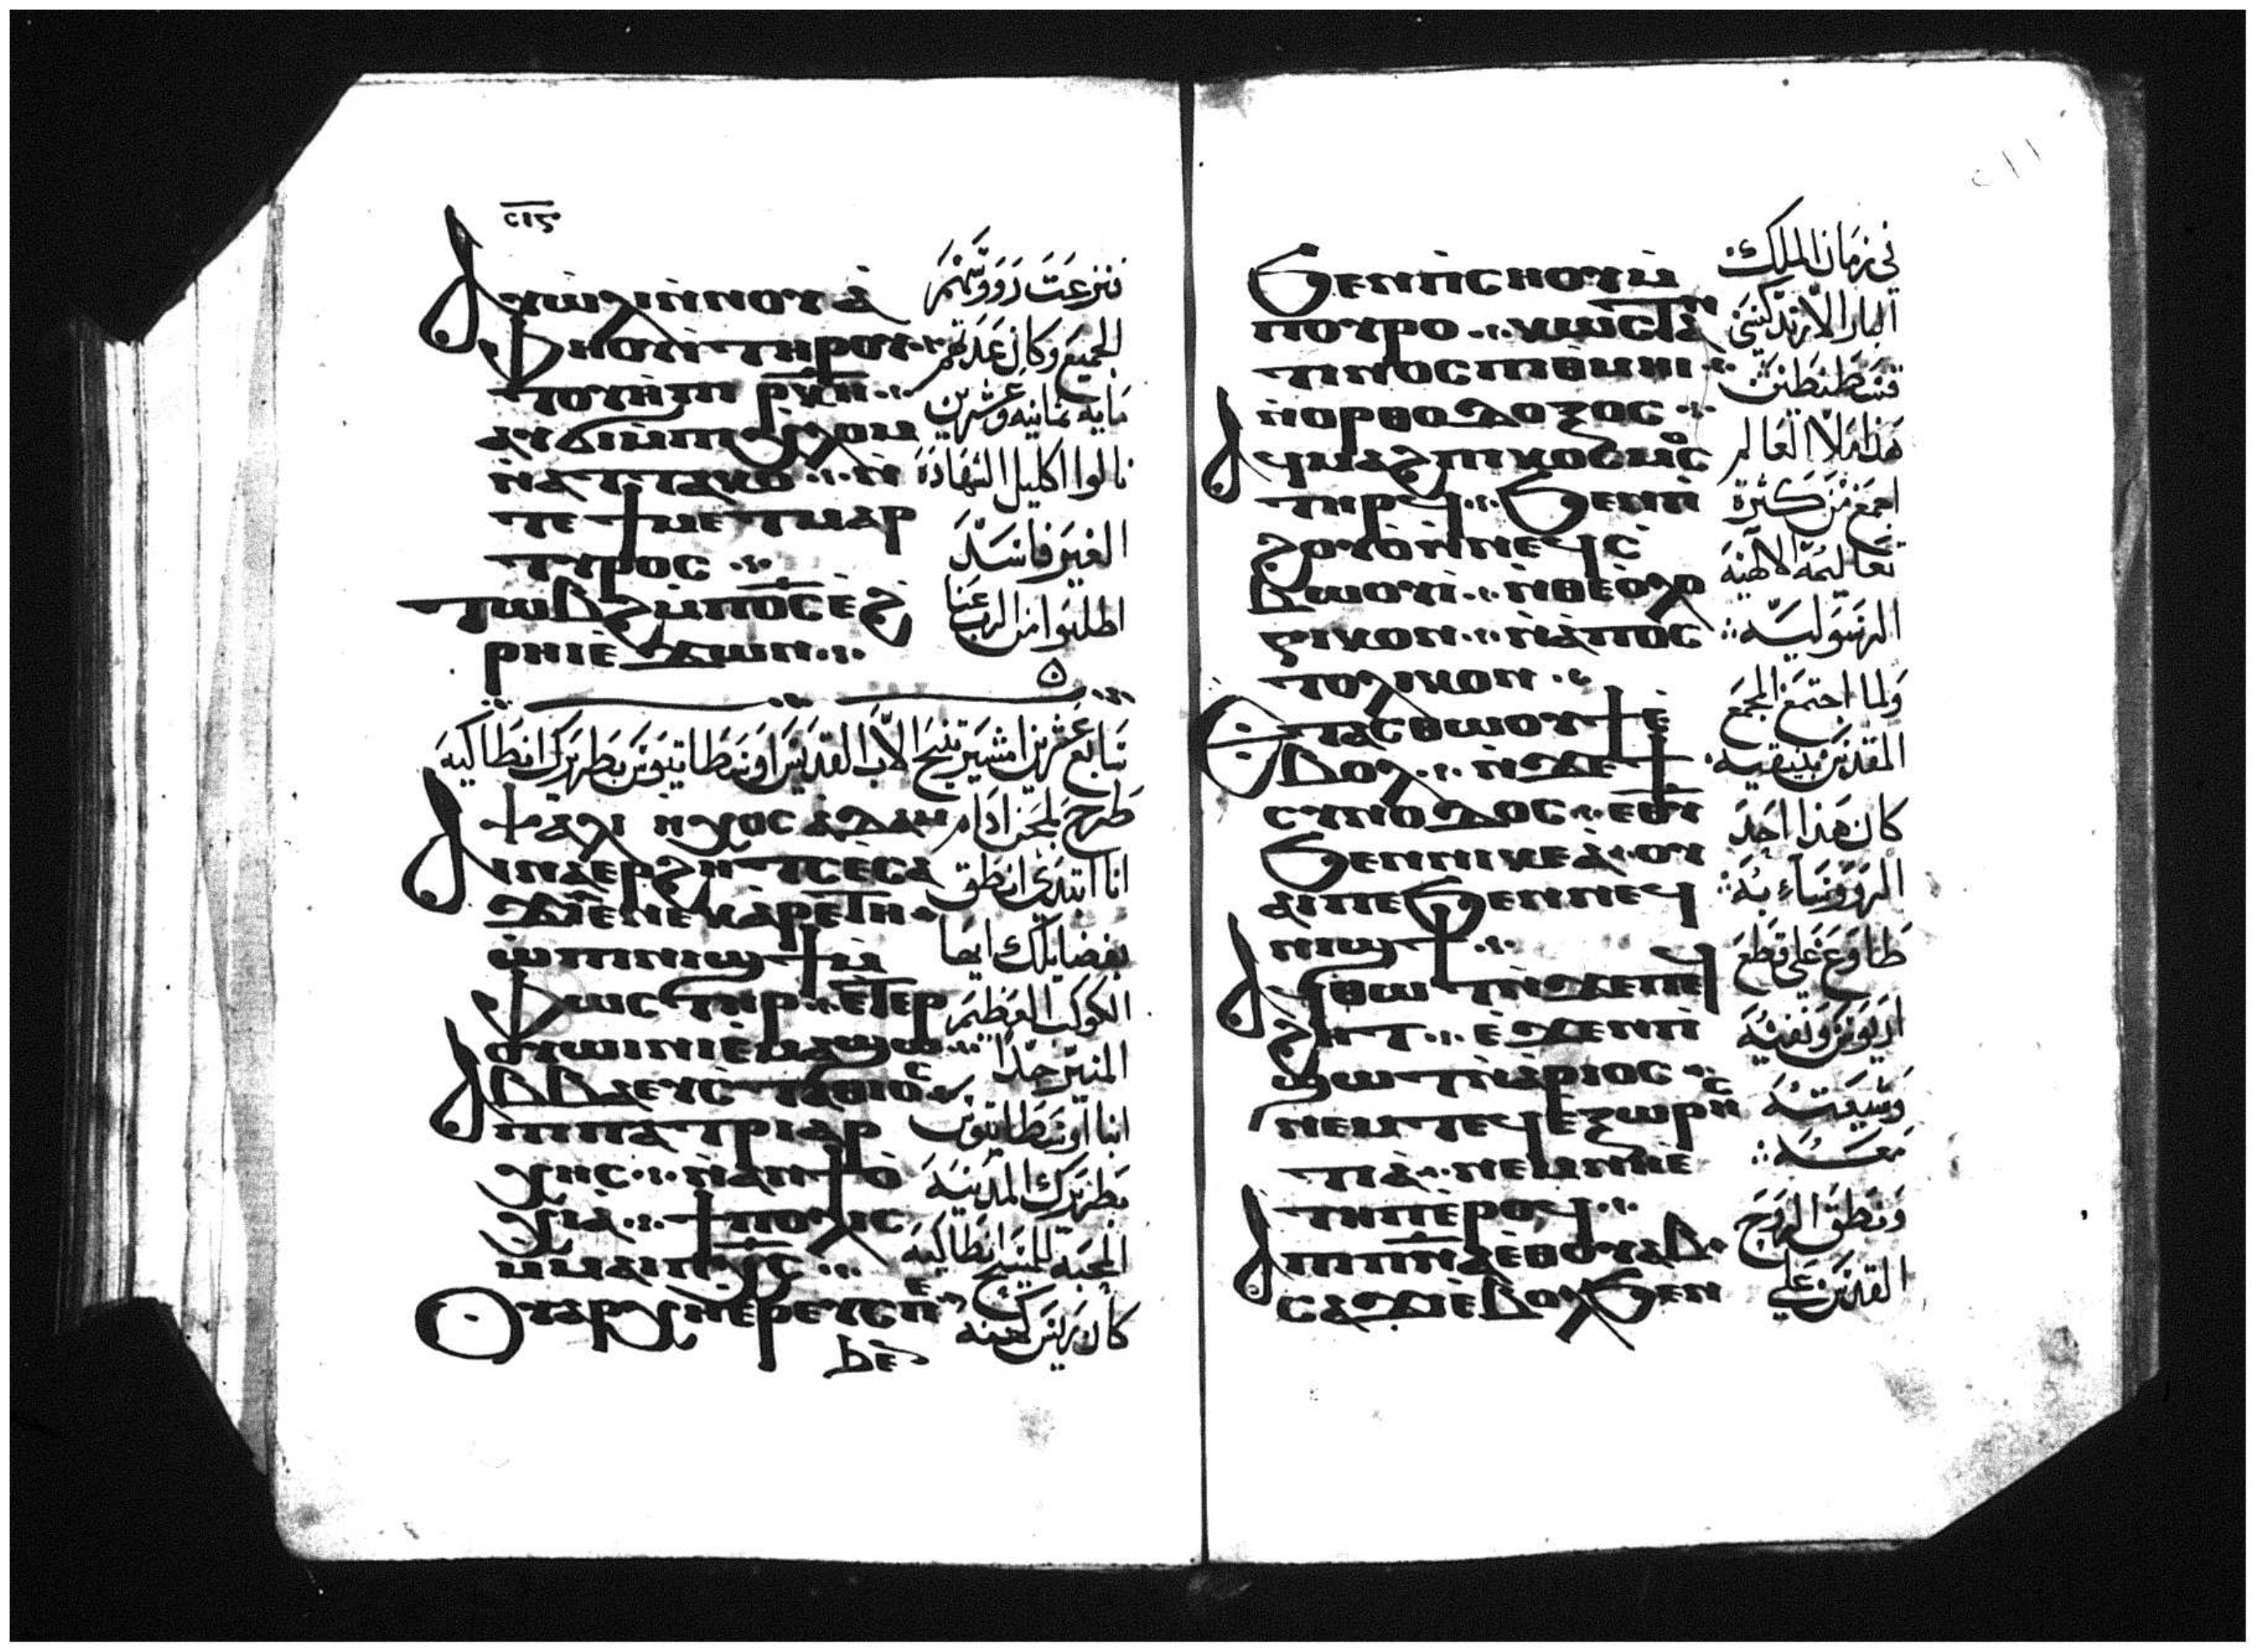 ⲥⲓⲋ
ⲁⲩⲱⲗⲓ ⲛ̀ⲛⲟⲩⲁ̀
ⲫⲏⲟⲩⲓ̀ ⲧⲏⲣⲟⲩ
ⲧⲟⲩⲏ̀ⲡⲓ ⲣⲕⲏ
ⲁⲩϭⲓ ⲙ̀ⲡⲓⲭⲗⲟⲙ
ⲛ̀ⲁⲧⲧⲁⲕⲟ ⲛ̀
ⲧⲉ ϯⲙⲉⲧⲙⲁⲣ
ⲧⲩⲣⲟⲥ
ⲧⲱⲃϩ ⲙ̀ⲡⲟ̅ⲥ̅ ⲉ̀ϩ
ⲣⲏⲓ ⲉ̀ϫⲱⲛ
فنزعت روؤسهم
الجميع وكان عدتهم
مايه ثمانيه وعشرين
نالوا اكليل الشهادة
الغير فاسد
اطلبوا من الرب عنا
سابع عشرين امشير تنيح الاب القديس اوسطاتيوس بطريرك انطاكيه
ⲯⲁⲗⲓ ⲏⲭⲟⲥ ⲁⲇⲁⲙ
ⲁⲓⲛⲁⲉⲣϩⲏⲧⲥ ⲉ̀ⲥⲁ
ϫⲓ ⲉ̀ⲛⲉⲕⲁⲣⲉⲧⲏ
ⲱ̀ ⲡⲓⲛⲓϣϯ ⲙ̀
ⲫⲱⲥⲧⲏⲣ ⲉⲧⲉⲣ
ⲟⲩⲱⲓⲛⲓ ⲉ̀ⲙⲁϣⲱ
ⲁⲃⲃⲁ ⲉⲩⲥⲧⲁⲑⲓⲟⲥ
ⲡⲓⲡⲁⲧⲣⲓⲁⲣ
ⲭⲏⲥ ⲛ̀ⲁⲛⲧⲓⲟ̀
ⲭⲓⲁ̀ ϯⲡⲟⲗⲓⲥ
ⲙ̀ⲙⲁⲓⲡⲭ̅ⲥ̅
ⲟⲩⲁⲣⲭⲏⲉⲣⲉⲩⲥ ⲡⲉ
ϧⲉⲛ
طرح بلحن ادام
انا ابتدئ انطق
بفضايلك ايها
الكوكب العظيم
المنير جدا
انبا اوسطاتيوس
بطريرك المدينه
المحبه للمسيح انطاكيه
كان ريس كهنه
ϧⲉⲛ ⲡ̀ⲥⲏⲟⲩ ⲙ̀
ⲡⲟⲩⲣⲟ ⲕⲱⲥⲧⲁⲛ
ⲧⲓⲛⲟⲥ ⲡⲓⲑⲙⲏⲓ
ⲛ̀ⲟⲣⲑⲟⲇⲟⲝⲟⲥ
ⲁϥⲙⲁϩ ⲡⲓⲕⲟⲥⲙⲟⲥ
ⲧⲏⲣϥ ϧⲉⲛ ⲡ̀
ϩⲟⲩⲟ̀ ⲛ̀ⲛⲉϥⲥ̀
ⲃⲱⲟⲩⲓ̀ ⲛ̀ⲑⲉⲟ̀ⲗⲟ
ⲅⲓⲕⲟⲛ ⲛ̀ⲁ̀ⲡⲟⲥ
ⲧⲟⲗⲓⲕⲟⲛ
ⲉⲧⲁⲥⲑⲱⲟⲩϯ ⲉ̀
ⲃⲟⲗ ⲛ̀ϫⲉ ϯ
ⲥⲩⲛⲟⲇⲟⲥ ⲉⲑⲩ
ϧⲉⲛ ⲛⲓⲕⲉⲁ̀ ⲟⲩ
ⲁⲓ ⲡⲉ ϧⲉⲛ ⲛⲉϥ
ⲛⲓϣϯ
ⲁϥⲑⲱⲧ ⲛ̀ϫⲉ ⲡⲉϥ
ϩⲏⲧ ⲉ̀ϫⲉⲛ ⲡ̀
ϣⲱⲧ ⲛ̀ⲁⲣⲓⲟⲥ
ⲛⲉⲙ ⲧⲉϥⲉⲝⲱⲣⲏⲥ
ⲧⲓⲁ̀ ⲛⲉⲙ ⲛⲏⲉ̀
ⲧⲏⲡ ⲉ̀ⲣⲟϥ
ⲁ ⲡⲓⲡ̅ⲛ̅ⲁ̅ ⲉ̀ⲑⲟⲩⲁⲃ
ⲥⲁϫⲓ ⲉ̀ⲃⲟⲗ ϧⲉⲛ
في زمان الملك
البار الارتدكسي
قسطنطنين
هذا ملا العالم
اجمع من كثرة
تعاليمه الالهيه
الرسوليه
ولما اجتمع المجمع
المقدس بنيقيه
كان هذا احد
الروؤساء به
طاوع على قطع
اريوس ونفيه
وشيعته
معه
ونطق الروح
القدس علي